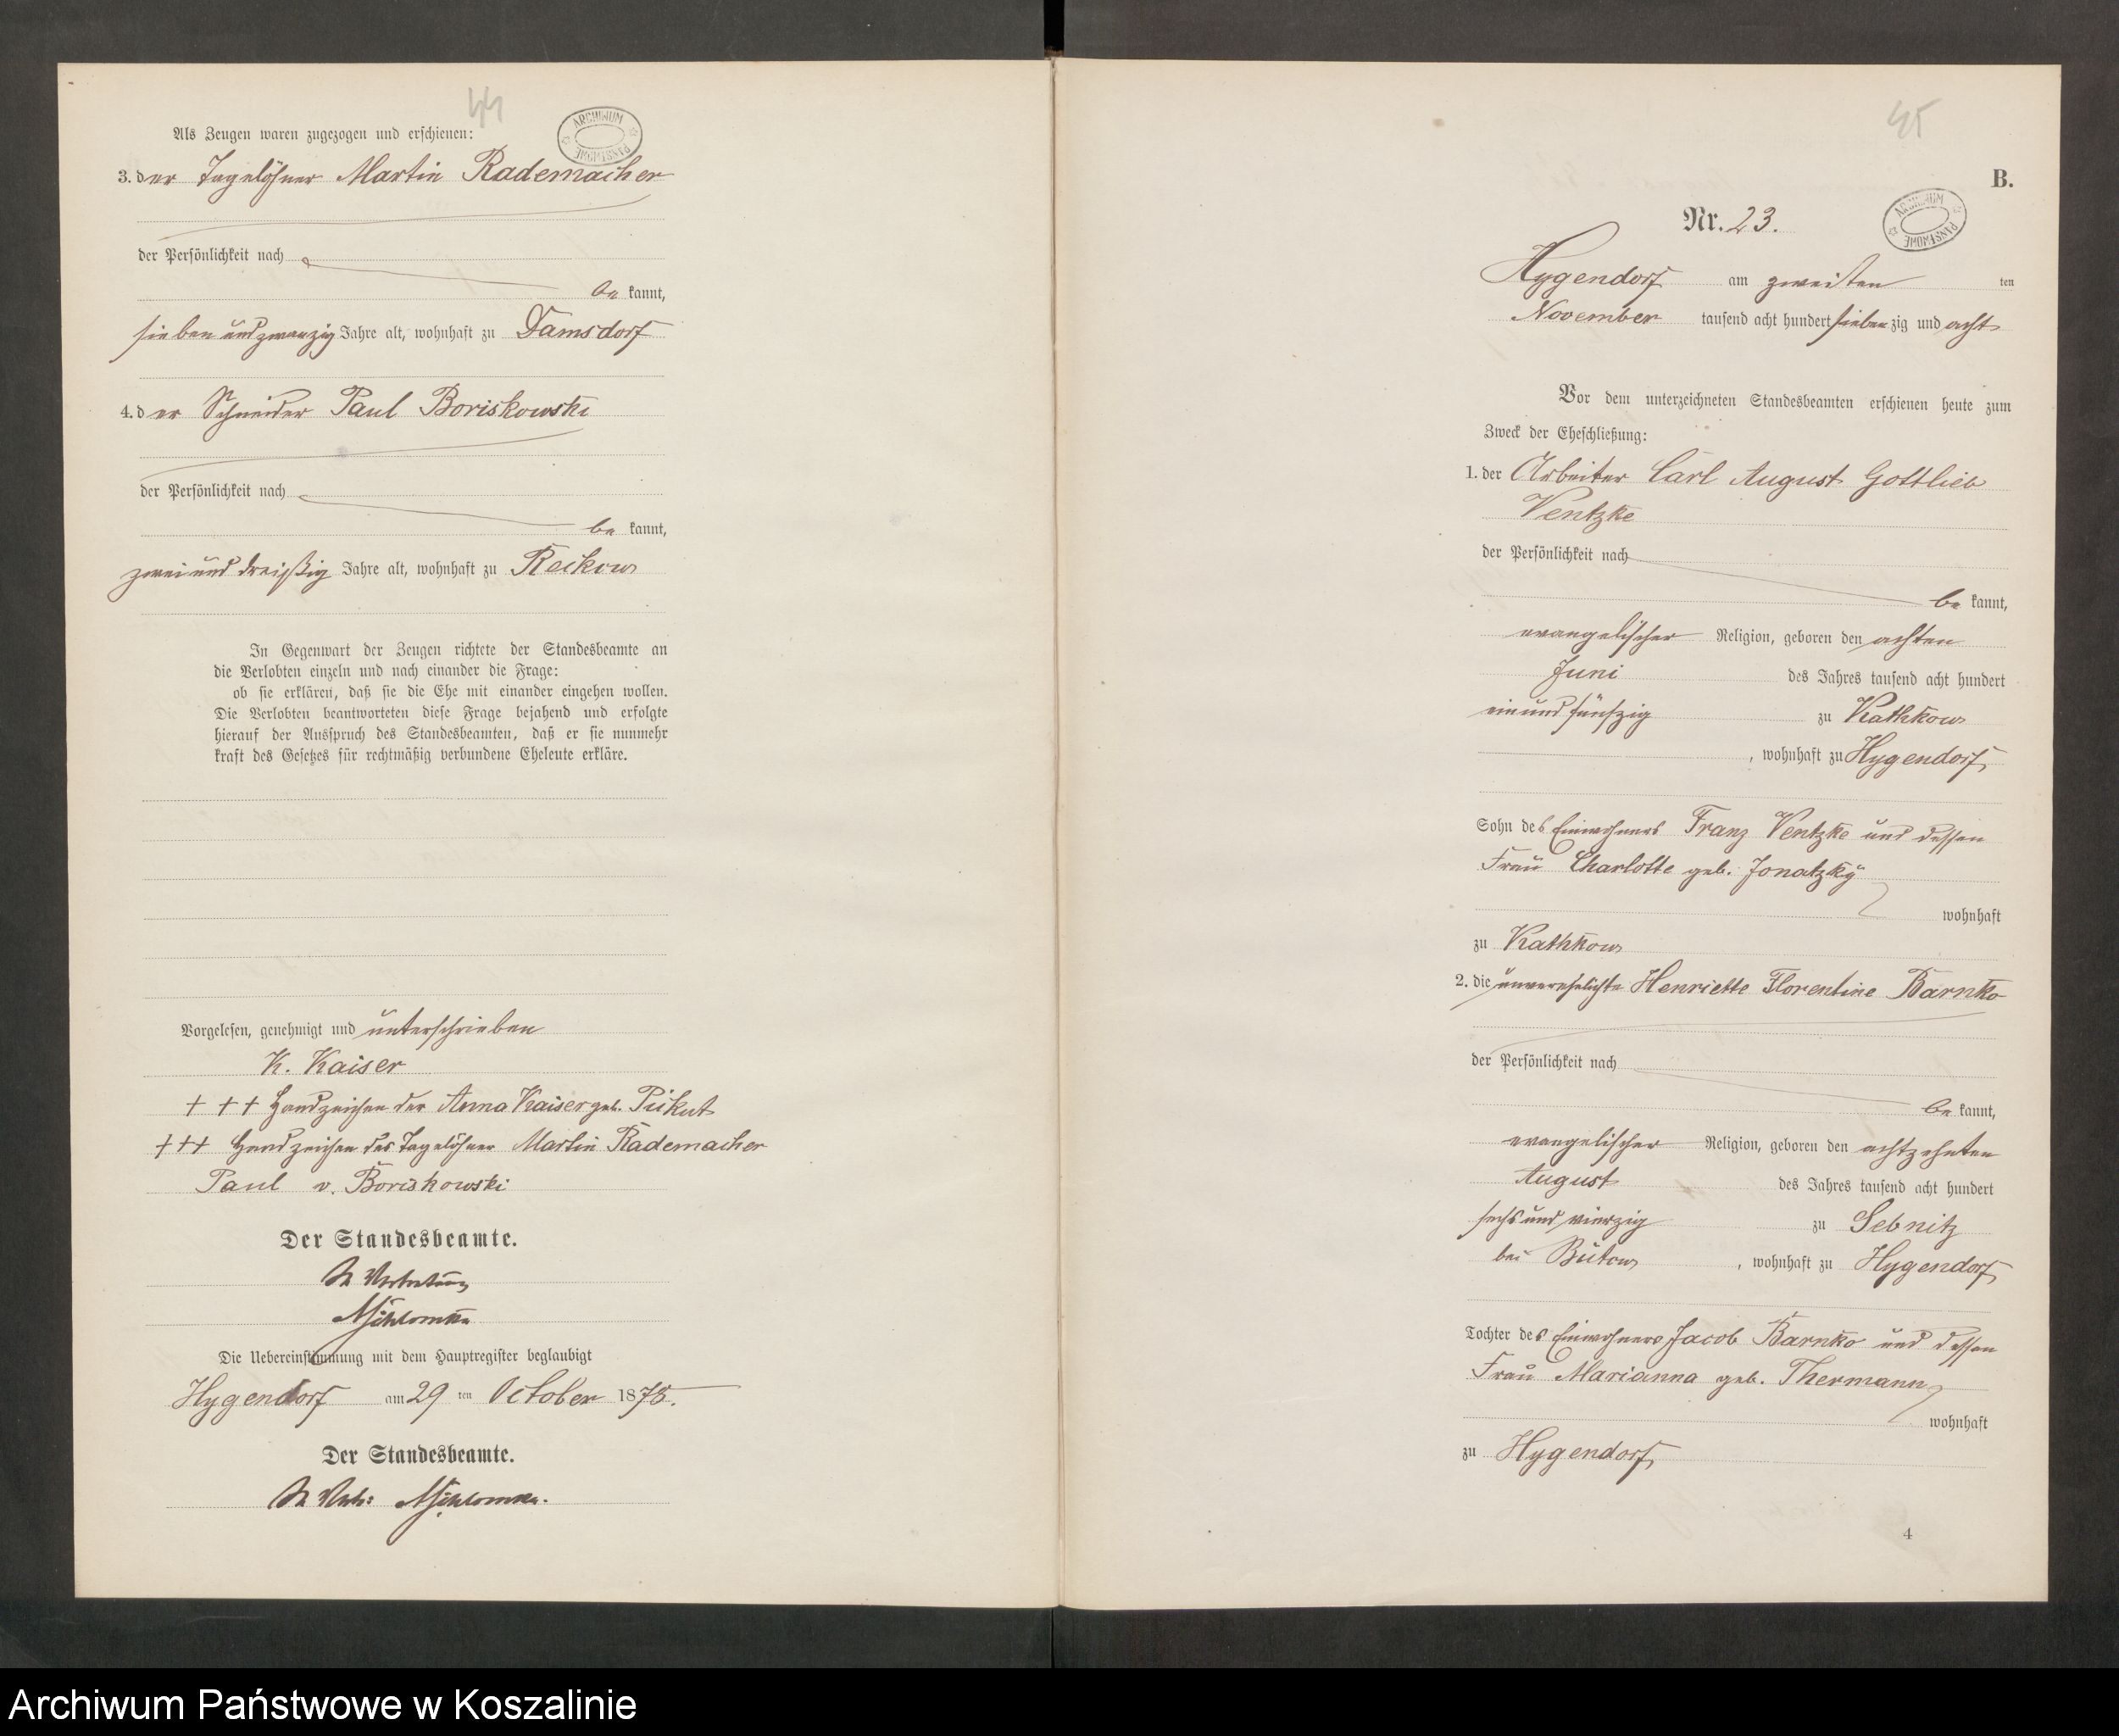 44
Als Zeugen waren zugezogen und erschienen:
3. der Tagelöhner Martin Rademacher
der Persönlichkeit nach
be kannt,
sieben und zwanzig Jahre alt, wohnhaft zu Damsdorf
4. der Schneider Paul Boriskowski
der Persönlichkeit nach
be kannt,
zwei und dreißig Jahre alt, wohnhaft zu Reckow
In Gegenwart der Zeugen richtete der Standesbeamte an
die Verlobten einzeln und nach einander die Frage:
ob sie erklären, daß sie die Ehe mit einander eingehen wollen.
Die Verlobten beantworteten diese Frage bejahend und erfolgte
hierauf der Ausspruch des Standesbeamten, daß er sie nunmehr
kraft des Gesetzes für rechtmäßig verbundene Eheleute erkläre.
Vorgelesen, genehmigt und unterschrieben
K. Kaiser
+ + + Handzeichen der Anna Kaiser geb. Pikut
+++ Handzeichen des Tagelöhner Martin Rademacher
Paul v. Boriskowski
Der Standesbeamte.
In Vertretung
Die Uebereinstimmung mit dem Hauptregister beglaubigt
Hygendorf am 29 ten October 1878.
Der Standesbeamte.
In Vertr:
ARCHIWUM PAŃSTWOWE
45
B.
ARCHIWUM PAŃSTWOWE
Nr. 23.
Hygendorf am zweiten ten
November tausend acht hundert sieben zig und acht
Vor dem unterzeichneten Standesbeamten erschienen heute zum
Zweck der Eheschließung:
1. der Arbeiter Carl August Gottlieb
Ventzke
der Persönlichkeit nach
be kannt,
evangelischer Religion, geboren den achten
Juni des Jahres tausend acht hundert
ein und fünfzig zu Kathkow
, wohnhaft zu Hygendorf,
Sohn des Einwohners Franz Ventzke und dessen
Frau Charlotte geb. Jonatzky
wohnhaft
zu Kathkow
2. die unverehelichte Henriette Florentine Barnko
der Persönlichkeit nach
be kannt,
evangelischer Religion, geboren den achtzehnten
August des Jahres tausend acht hundert
sechs und vierzig zu Sebnitz
bei Bütow, wohnhaft zu Hygendorf
Tochter des Einwohners Jacob Barnko und dessen
Frau Marianna geb. Thermann
wohnhaft
zu Hygendorf,
4
Archiwum Państwowe w Koszalinie